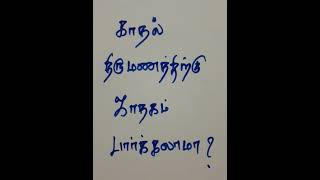 காதல்
திருமணத்திற்கு
ஜாதகம்
பார்க்கலாமா ?